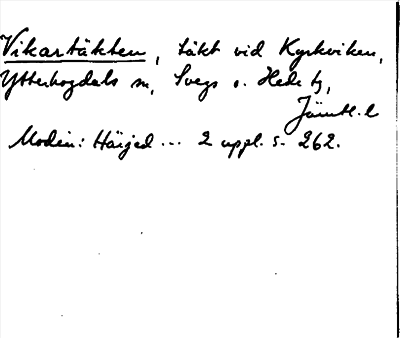 Vikartäkten, täkt vid Kyrkviken,
Ytterhogdals sn, Svegs o. Hede tg,
Jämtl. l
Modin: Härjed ... 2 uppl. s. 262.